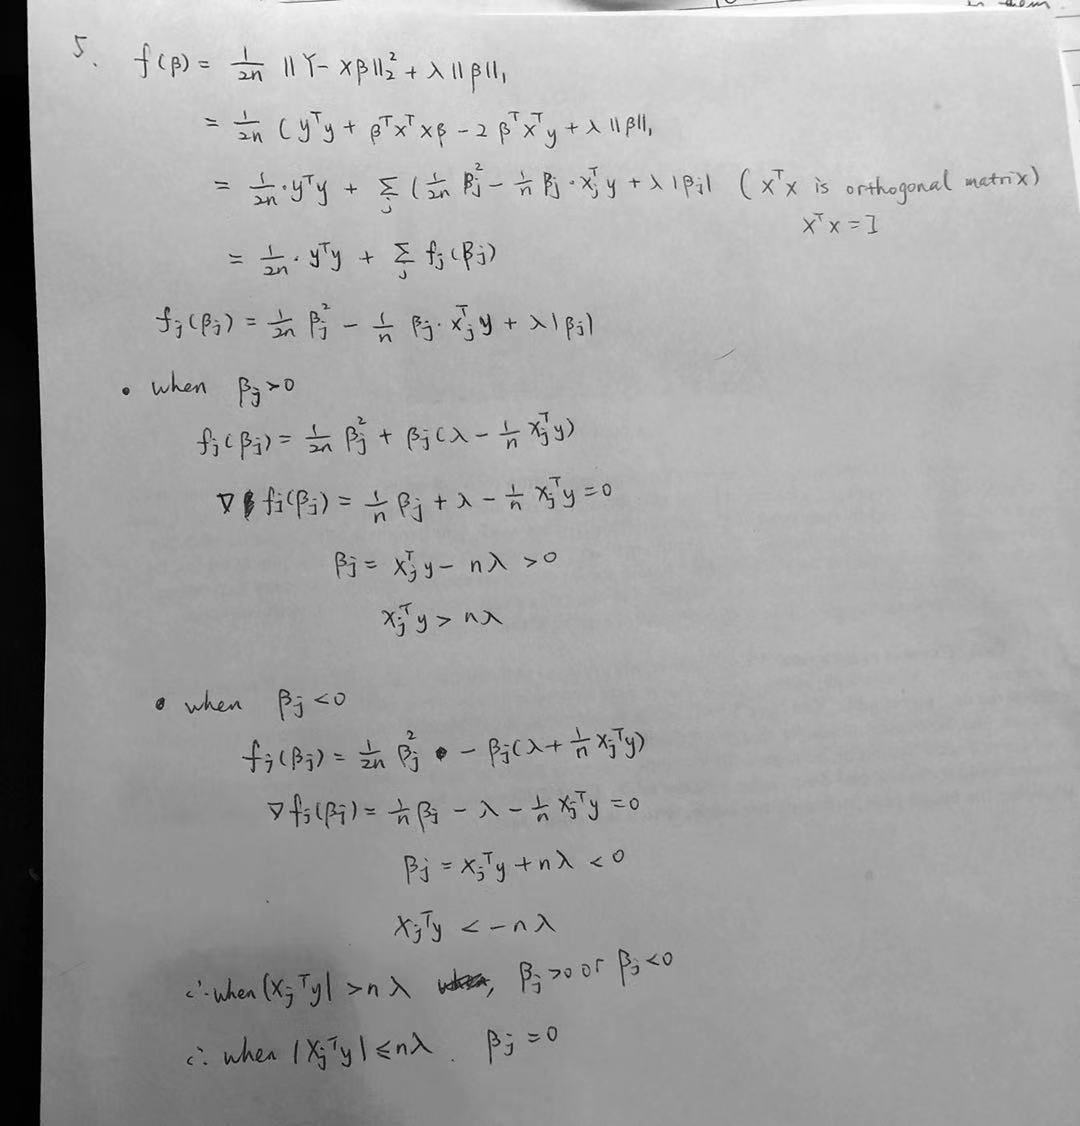 in them.
5. f(β) = 1/2n ||Y - Xβ||₂² + λ||β||₁
= 1/2n (yᵀy + βᵀXᵀXβ - 2βᵀXᵀy + λ||β||₁
= 1/2n · yᵀy + Σⱼ (1/2n βⱼ² - 1/n βⱼ · xⱼᵀy + λ|βⱼ| (XᵀX is orthogonal matrix)
XᵀX = I
= 1/2n · yᵀy + Σⱼ fⱼ(βⱼ)
fⱼ(βⱼ) = 1/2n βⱼ² - 1/n βⱼ · xⱼᵀy + λ|βⱼ|
• when βⱼ>0
fⱼ(βⱼ) = 1/2n βⱼ² + βⱼ(λ - 1/n xⱼᵀy)
∇fⱼ(βⱼ) = 1/n βⱼ + λ - 1/n xⱼᵀy = 0
βⱼ = xⱼᵀy - nλ > 0
xⱼᵀy > nλ
• when βⱼ<0
fⱼ(βⱼ) = 1/2n βⱼ² - βⱼ(λ + 1/n xⱼᵀy)
∇fⱼ(βⱼ) = 1/n βⱼ - λ - 1/n xⱼᵀy = 0
βⱼ = xⱼᵀy + nλ < 0
xⱼᵀy < -nλ
∴ when |xⱼᵀy| > nλ, βⱼ>0 or βⱼ<0
∴ when |xⱼᵀy| ≤ nλ. βⱼ = 0